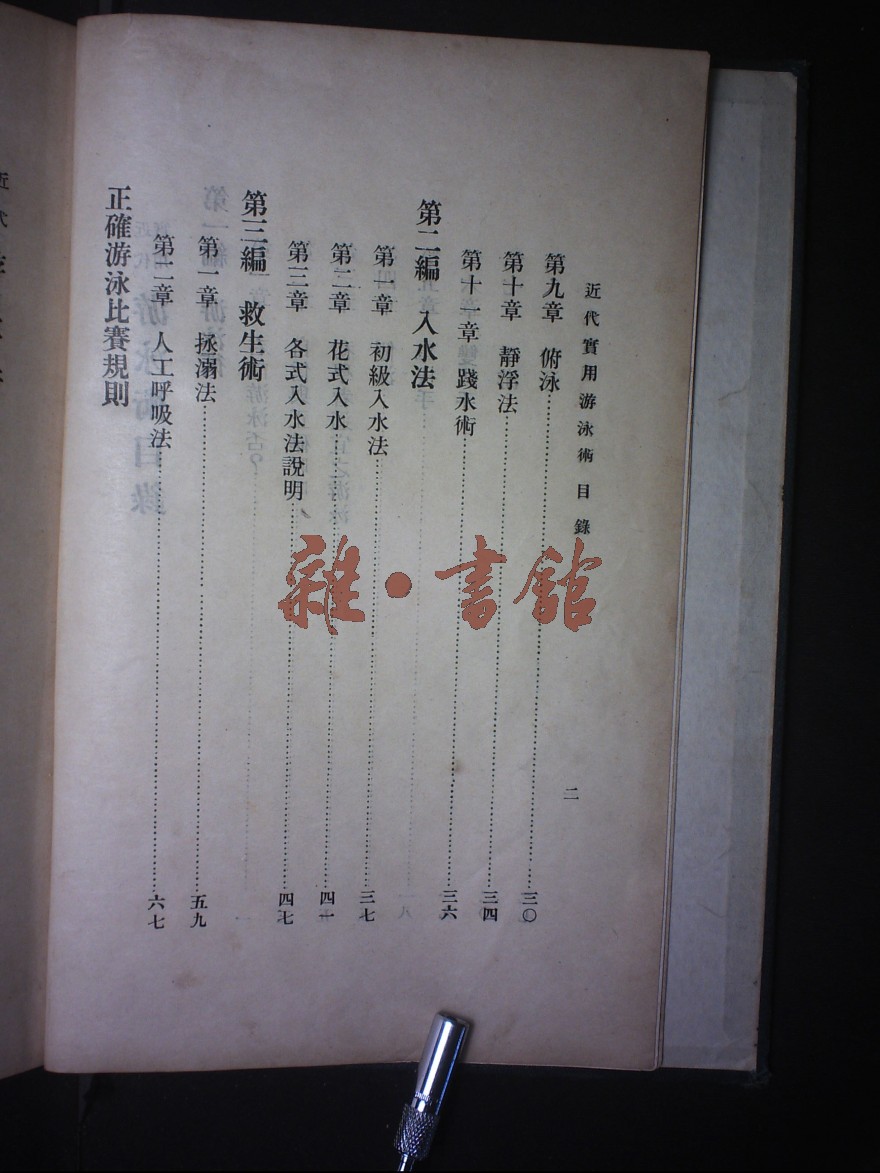 近代實用游泳術目錄 二
第九章 俯泳 三〇
第十章 靜浮法 三四
第十一章 踐水術 三六
第二編 入水法
第一章 初級入水法 三七
第二章 花式入水 四一
第三章 各式入水法說明 四七
第三編 救生術
第一章 拯溺法 五九
第二章 人工呼吸法 六七
正確游泳比賽規則
雜·書館